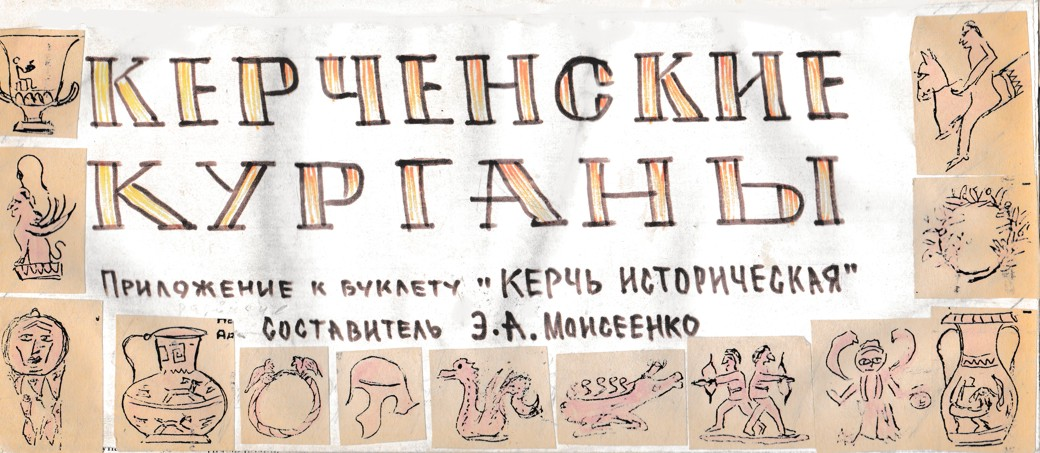 КЕРЧЕНСКИЕ
КУРГАНЫ
ПРИЛОЖЕНИЕ К БУКЛЕТУ "КЕРЧЬ ИСТОРИЧЕСКАЯ"
СОСТАВИТЕЛЬ Э.А. МОИСЕЕНКО